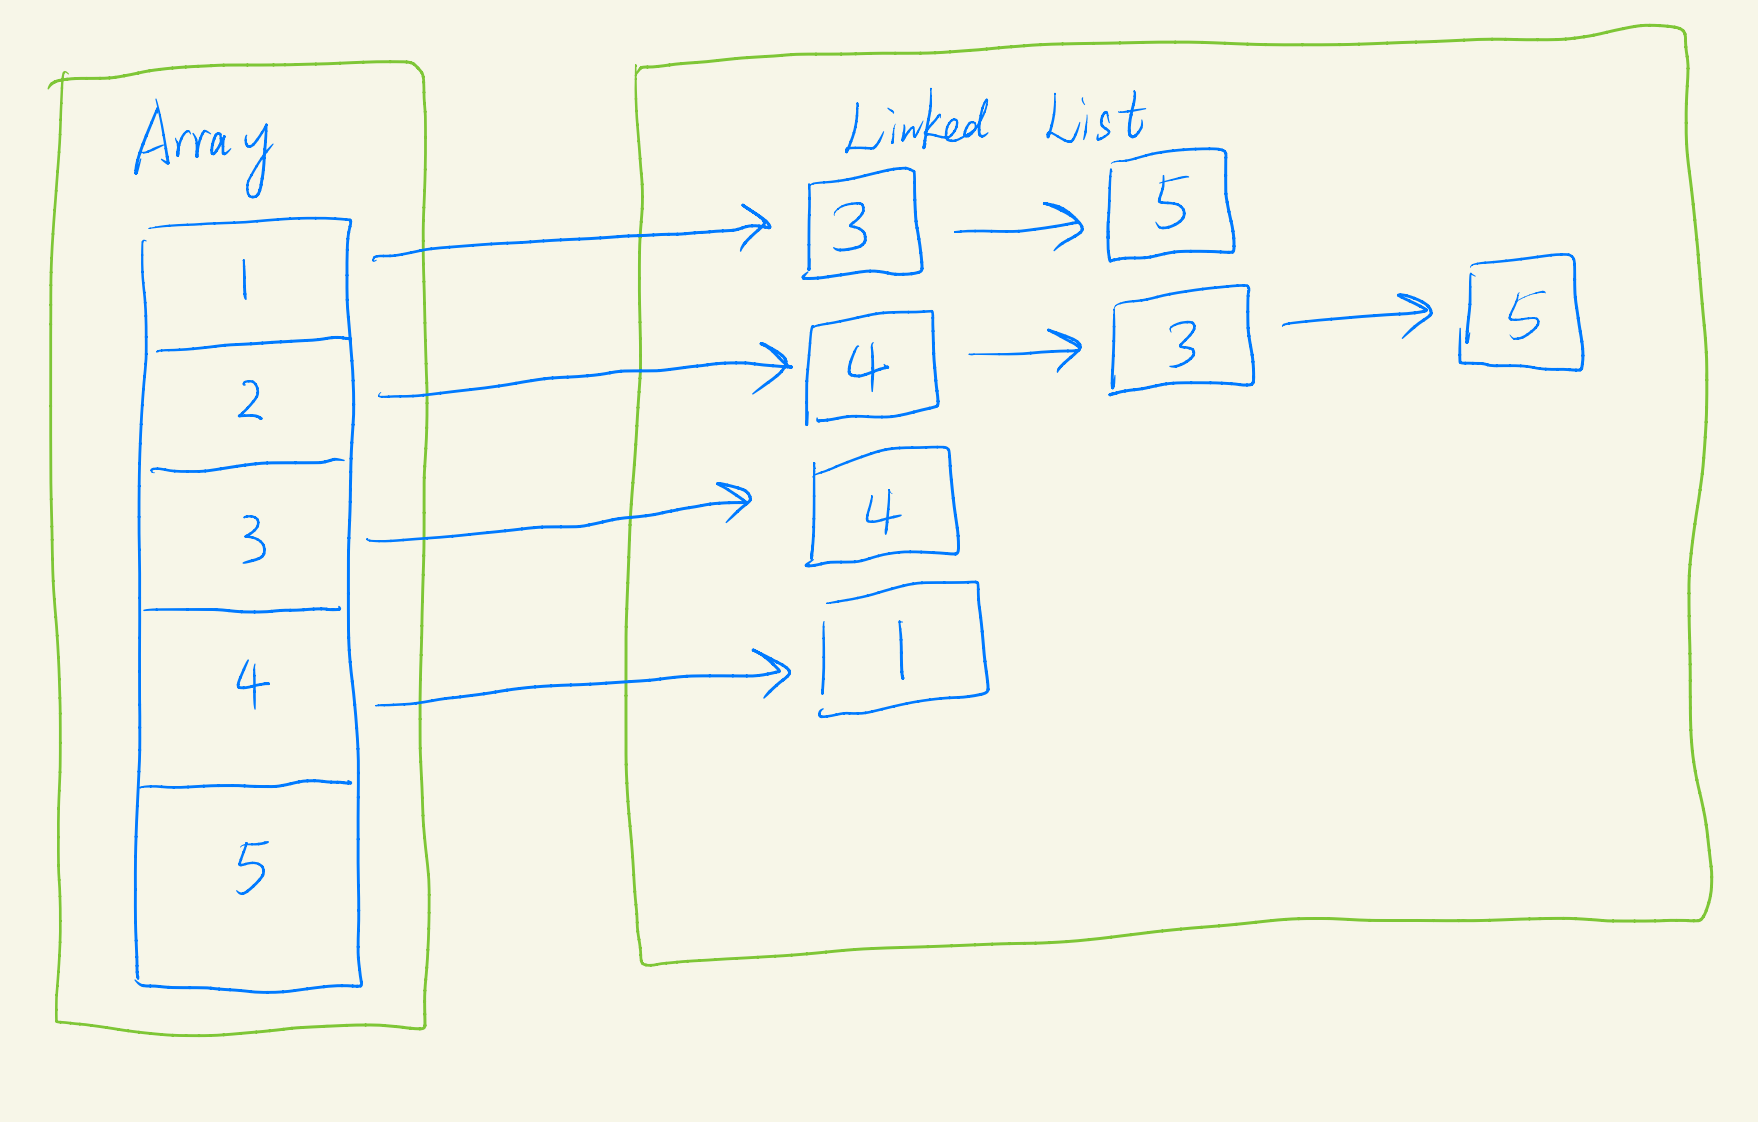 Array
1
2
3
4
5
Linked List
3 5
4 3 5
4
1